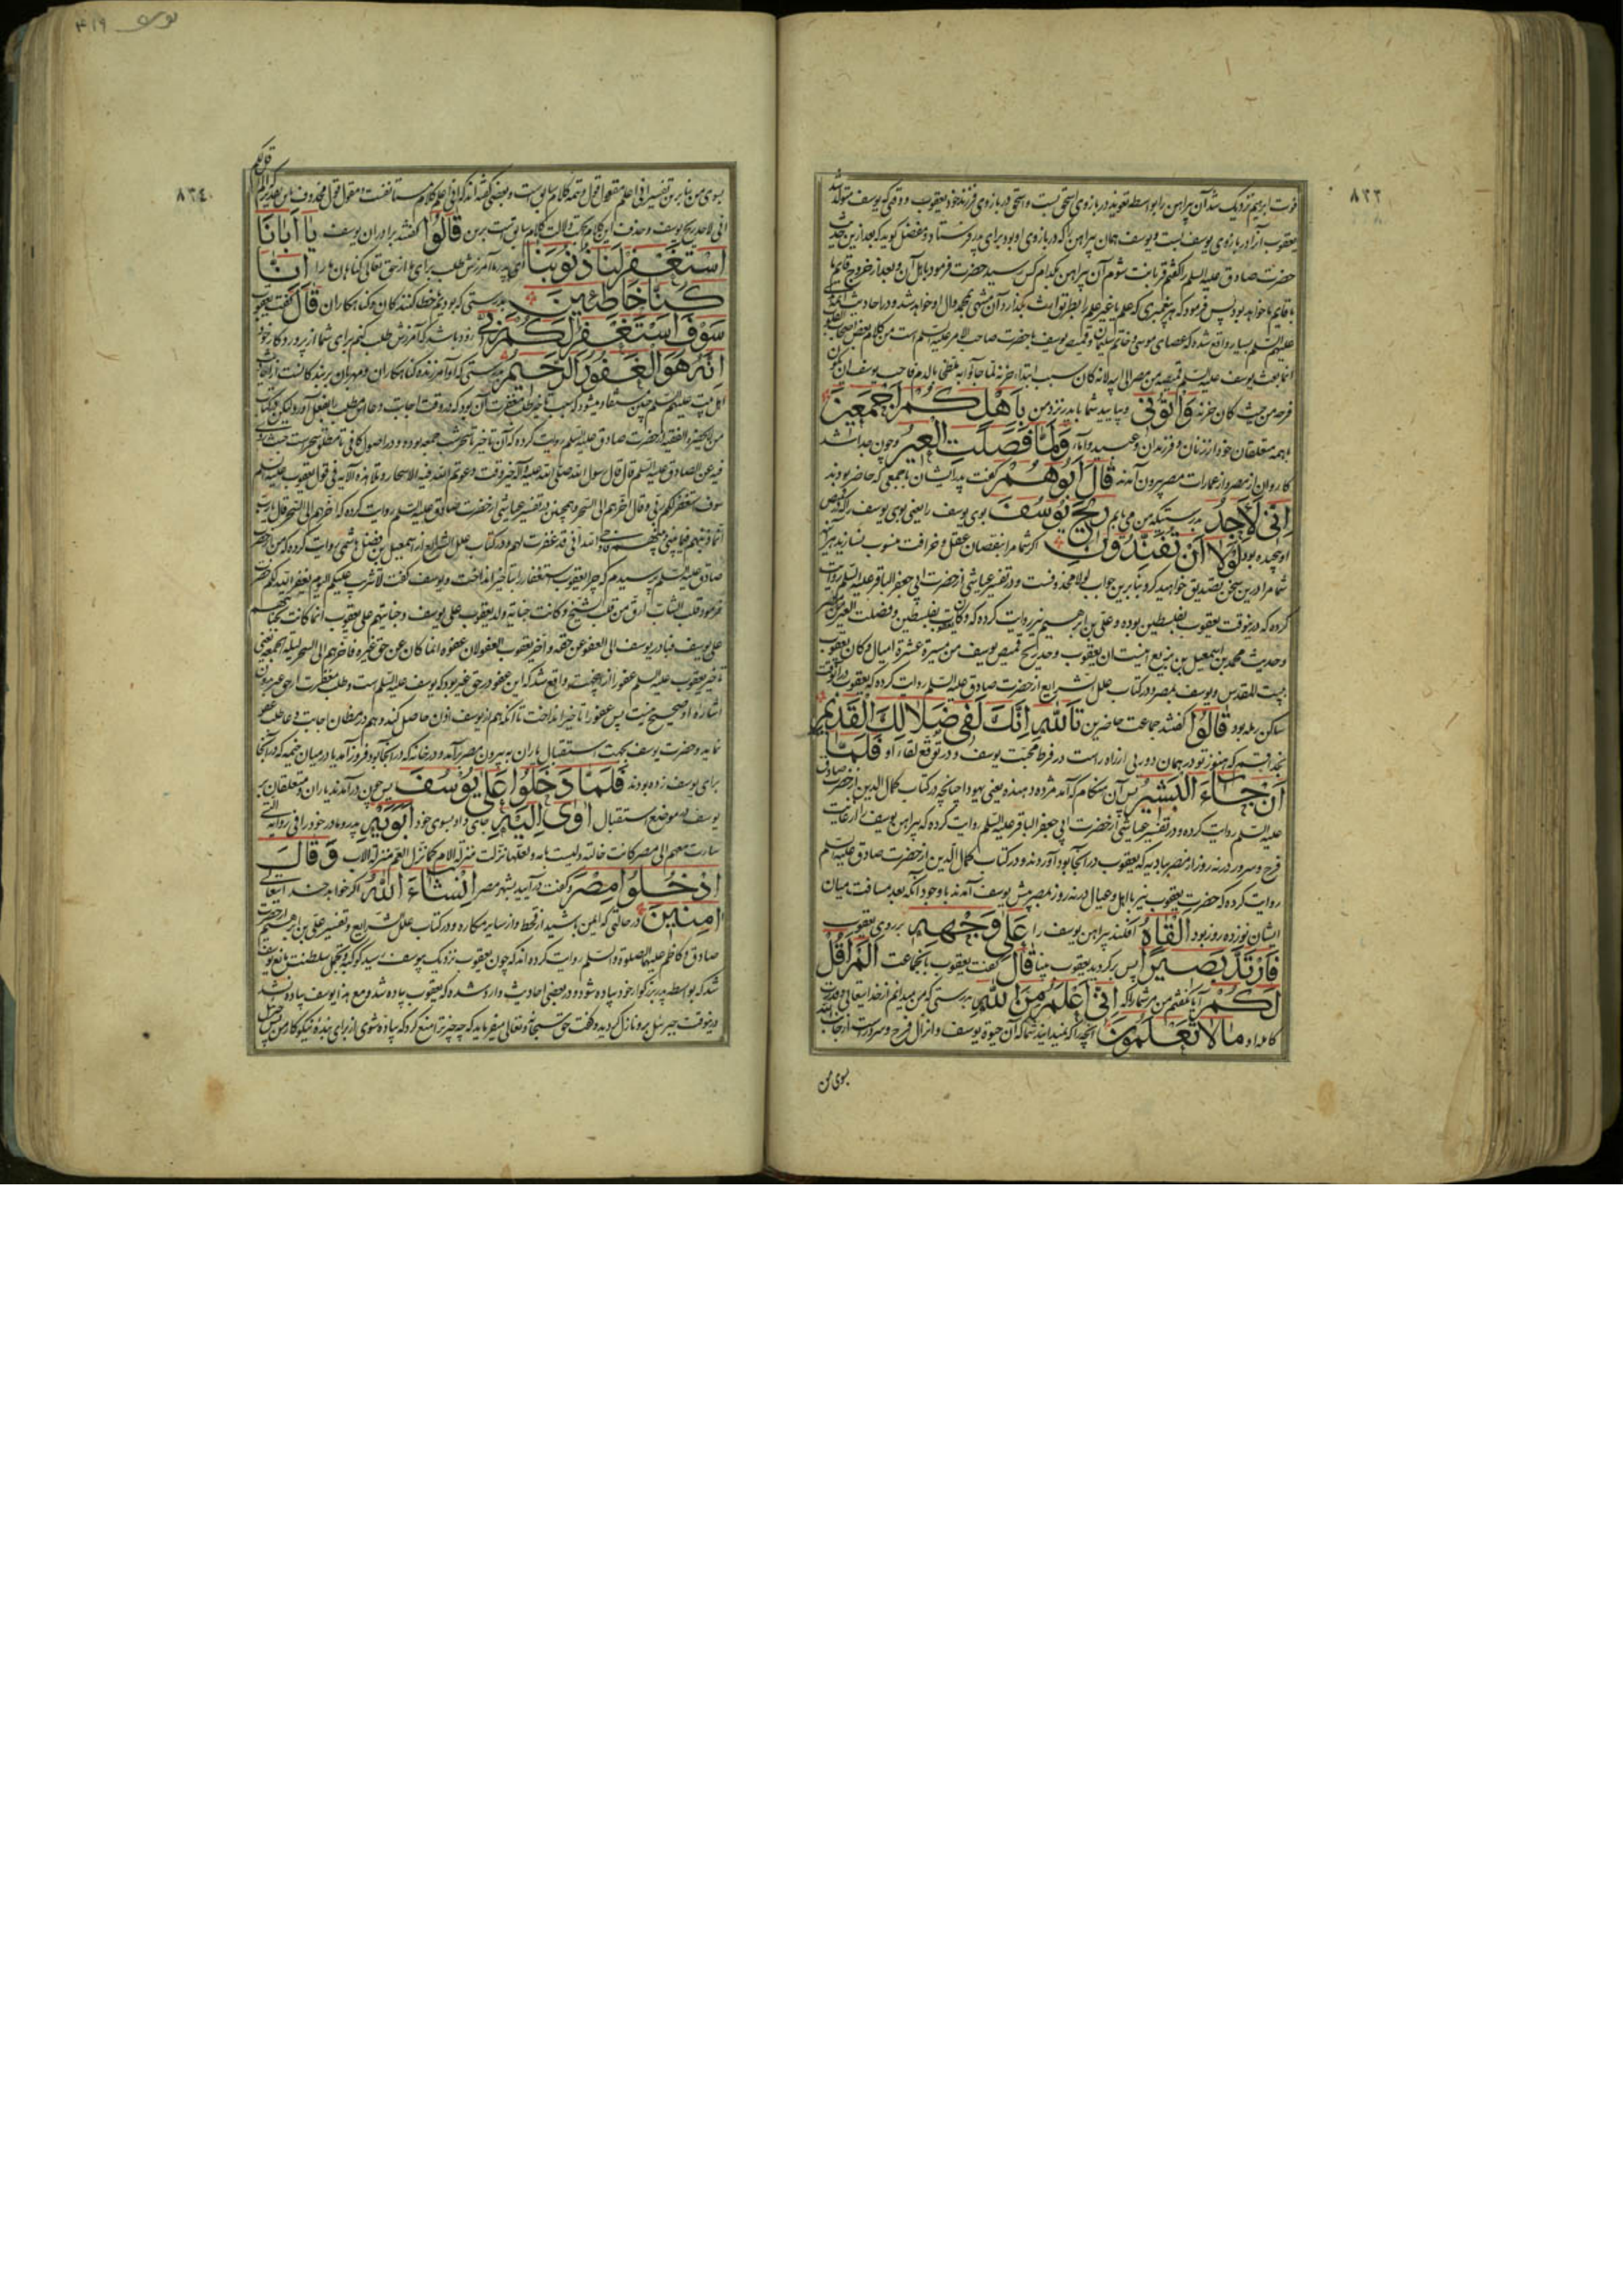 ۸۳۳
فوت ابراهیم نزدیک شد آن پیراهن را بواسطه تعوید در بازوی اسحق بست و اسحق در بازوی فرزند خود یعقوب و وقتی که یوسف متولد شد
یعقوب آنرا در بازوی یوسف بست و یوسف همان پیراهن را که در بازوی او بود برای پدر فرستاد و مفضل کوید که بعد ازین حدیث
حضرت صادق علیه السلم را کفتم قربانت شوم آن پیراهن بکدام کس رسید حضرت فرمود باهل آن و بعد از خروج قایم ما
با قایم ما خواهد بود پس فرمود که هر پیغمبری که علم یا غیر علم را بطریق وراثت بگذارد آن منتهی بمحمد وال او خواهد شد و در احادیث ائمه
علیهم السلم بسیار واقع شده که عصای موسی و خاتم سلیمان و قمیص یوسف با حضرت صاحب الامر علیه السلم است من کلام بعض اصحاب القلوب
انما بعث یوسف علیه السلم قمیصه من مصر الی ابیه لانه کان سبب ابتداء حزنه لما جاؤا به ملطخا بالدم فاحب یوسف ان یکون
فرحه من حیث کان حزنه وَاْتُونى و بیایید شما با پدر نزد من بِاَهْلِكُمْ اَجْمَعينَ
بهمه متعلقان خود از زنان و فرزندان و عبید و اما وَلَمَّا فَصَلَتِ الْعيرُ و چون جدا شد
کاروان از مصر و از عمارات مصر بیرون آمدند قالَ اَبُوهُمْ کفت پدر ایشان با جمعی که حاضر بودند
اِنّى لَاَجِدُ بدرستیکه من می یابم ريحَ يُوسُفَ بوی یوسف را یعنی بوی یوسف را که در قمیص
او پیچیده بود لَوْلا اَنْ تُفَنِّدُونِ اکر شما مرا بنقصان عقل و خرافت منسوب نسازید هر آینه
شما مرا درین سخن تصدیق خواهید کرد بنا برین جواب لولا محذوفست و در تفسیر عیاشی از حضرت ابی جعفر الباقر علیه السلم روایت
کرده که درینوقت یعقوب بفلسطین بوده و علی بن ابرهیم نیز روایت کرده که وکان یعقوب بفلسطین و فصلت العیر من مصر
و حدیث محمد بن اسمعیل بن بزیع اینست ان یعقوب وجد ریح قمیص یوسف من مسیرة عشرة امیال و کان یعقوب
ببیت المقدس و یوسف بمصر و در کتاب علل الشرایع از حضرت صادق علیه السلم روایت کرده که یعقوب در آنوقت
ساکن رمله بود قالُوا کفتند جماعت حاضرین تَاللّهِ اِنَّكَ لَفى ضَلالِكَ الْقَديمِ
بخدا قسم که هنوز تو در همان دوریی از راه راست در فرط محبت یوسف و در توقع لقاء او فَلَمّا
اَنْ جاءَ الْبَشيرُ پس آن هنکام که آمد مژده دهنده یعنی یهودا چنانچه در کتاب کمال الدین از حضرت صادق
علیه السلم روایت کرده و در تفسیر عیاشی از حضرت ابی جعفر الباقر علیه السلم روایت کرده که پیراهن یوسف را از غایت
فرح و سرور در نه روز از مصر ببادیه که یعقوب در آنجا بود آوردند و در کتاب کمال الدین از حضرت صادق علیه السلم
روایت کرده که حضرت یعقوب نیز با اهل و عیال در نه روز بمصر پیش یوسف آمدند با وجود آنکه بعد مسافت میان
ایشان نوزده روز بود اَلْقاهُ افکند پیراهن یوسف را عَلى وَجْهِهِ بر روی یعقوب
فَارْتَدَّ بَصيرًا پس برکردید یعقوب بینا قالَ کفت یعقوب با آنجماعت اَلَمْ اَقُلْ
لَكُمْ آیا نکفتم من مر شما را که اِنّى اَعْلَمُ مِنَ اللّهِ بدرستی که من میدانم از خدایتعالی و قدرت
کامله او ما لا تَعْلَمُونَ آنچه را که نمیدانید شما که آن حیوة یوسف و انزال فرح و سرور است از جانب الله
بسوی من
یوسف ۴۱۹
۸۳۴
بسوی من بنا برین تفسیر انی اعلم مقول قول و تتمه کلام سابق است و بعضی کفته اند که انی اعلم کلام مستانفست و مقول قول محذوف پس تقدیر الم اقل لکم
انی لاجد ریح یوسف و حذف این کلام بجهت دلالت کلام سابق است برین قالُوا کفتند برادران یوسف يا اَبانَا
اسْتَغْفِرْ لَنا ذُنُوبَنا ای پدر ما آمرزش طلب برای ما از حق تعالی کناهان ما را اِنّا
كُنّا خاطِئينَ بدرستی که بودیم ما خطا کنندکان و کناهکاران قالَ کفت یعقوب
سَوْفَ اَسْتَغْفِرُ لَكُمْ رَبّى زود باشد که آمرزش طلب کنم برای شما از پروردکار خود
اِنَّهُ هُوَ الْغَفُورُ الرَّحيمُ بدرستی که او آمرزنده کناهکاران و مهربان بر بندکانست از احادیث
اهل بیت علیهم السلم چنین مستفاد میشود که سبب تاخیر طلب مغفرت آن بود که در وقت اجابت و جا این مطلب را بفعل آورد لیکن در کتاب
من لا یحضره الفقیه از حضرت صادق علیه السلم روایت کرده که آن تاخیر تا سحر شب جمعه بوده و در اصول کافی تا مطلق سحر است حیث روی
فیه عن الصادق علیه السلم قال قال رسول الله صلی الله علیه و آله خیر وقت دعوتم الله فیه الاسحار و تلا هذه الآیة فی قول یعقوب علیه السلم
سوف استغفر لکم ربی و قال اخرهم الی السحر و همچنین در تفسیر عیاشی از حضرت صادق علیه السلم روایت کرده که اخرهم الی السحر قال یا رب
انما ذنبهم فیما بینی و بینهم فاوحی الله انی قد غفرت لهم و در کتاب علل الشرایع از اسمعیل بن فضل هاشمی روایت کرده که من از حضرت
صادق علیه السلم پرسیدم که چرا یعقوب استغفار را بتاخیر انداخت و یوسف کفت لا تثریب علیکم الیوم یغفر الله لکم حضرت
فرمود قلب الشاب ارق من قلب الشیخ و کانت جنایة ولد یعقوب علی یوسف و جنایتهم علی یعقوب انما کانت بجنایتهم
علی یوسف فبادر یوسف الی العفو عن حقه و اخر یعقوب العفو لان عفوه انما کان عن حق غیره فاخرهم الی السحر لیلة الجمعة یعنی
تاخیر یعقوب علیه السلم عفو را ازینجهت واقع شد که این عفو در حق غیر بود که یوسف علیه السلم است و طلب مغفرت از حق غیر بدون
اشاره او صحیح نیست پس عفو را تاخیر انداخت تا آنکه هم از یوسف اذن حاصل کند و هم در مظان اجابت دعا طلب عفو
نماید و حضرت یوسف بجهت استقبال یاران به بیرون مصر بر آمد و در خانه که در آنجا بود فروز آمد یا در میان خیمه که در آنجا
برای یوسف زده بودند فَلَمّا دَخَلُوا عَلى يُوسُفَ پس چون در آمدند یاران و متعلقان بر
یوسف در موضع استقبال اوى اِلَيْهِ جای داد بسوی خود اَبَوَيْهِ پدر و مادر خود را فی روایة التی
سارت معهم الی مصر کانت خالته و لیست بامه و لعلها نزلت منزلة الام کما نزل العم منزلة الاب وَ قالَ
ادْخُلُوا مِصْرَ و کفت در آیید بشهر مصر اِنْشاءَ اللّهُ اکر خواهد خدایتعالی
امِنينَ در حالتی که ایمن باشید از قحط و از سایر مکاره و در کتاب علل الشرایع و تفسیر علی بن ابرهیم از حضرت
صادق و کاظم علیهما الصلوة و السلم روایت کرده اند که چون یعقوب نزدیک یوسف رسید کوکبه و تجمل سلطنت مانع یوسف
شد که بواسطه پدر بزرکوار خود پیاده شود و در بعضی احادیث وارد شده که یعقوب پیاده شد و مع هذا یوسف پیاده نشد
درینوقت جبرئیل برو نازل کردید و کفت حق سبحانه و تعالی میفرماید که چه چیز ترا منع کرد که پیاده شوی از برای بنده نیکوکار من پس جبرئیل